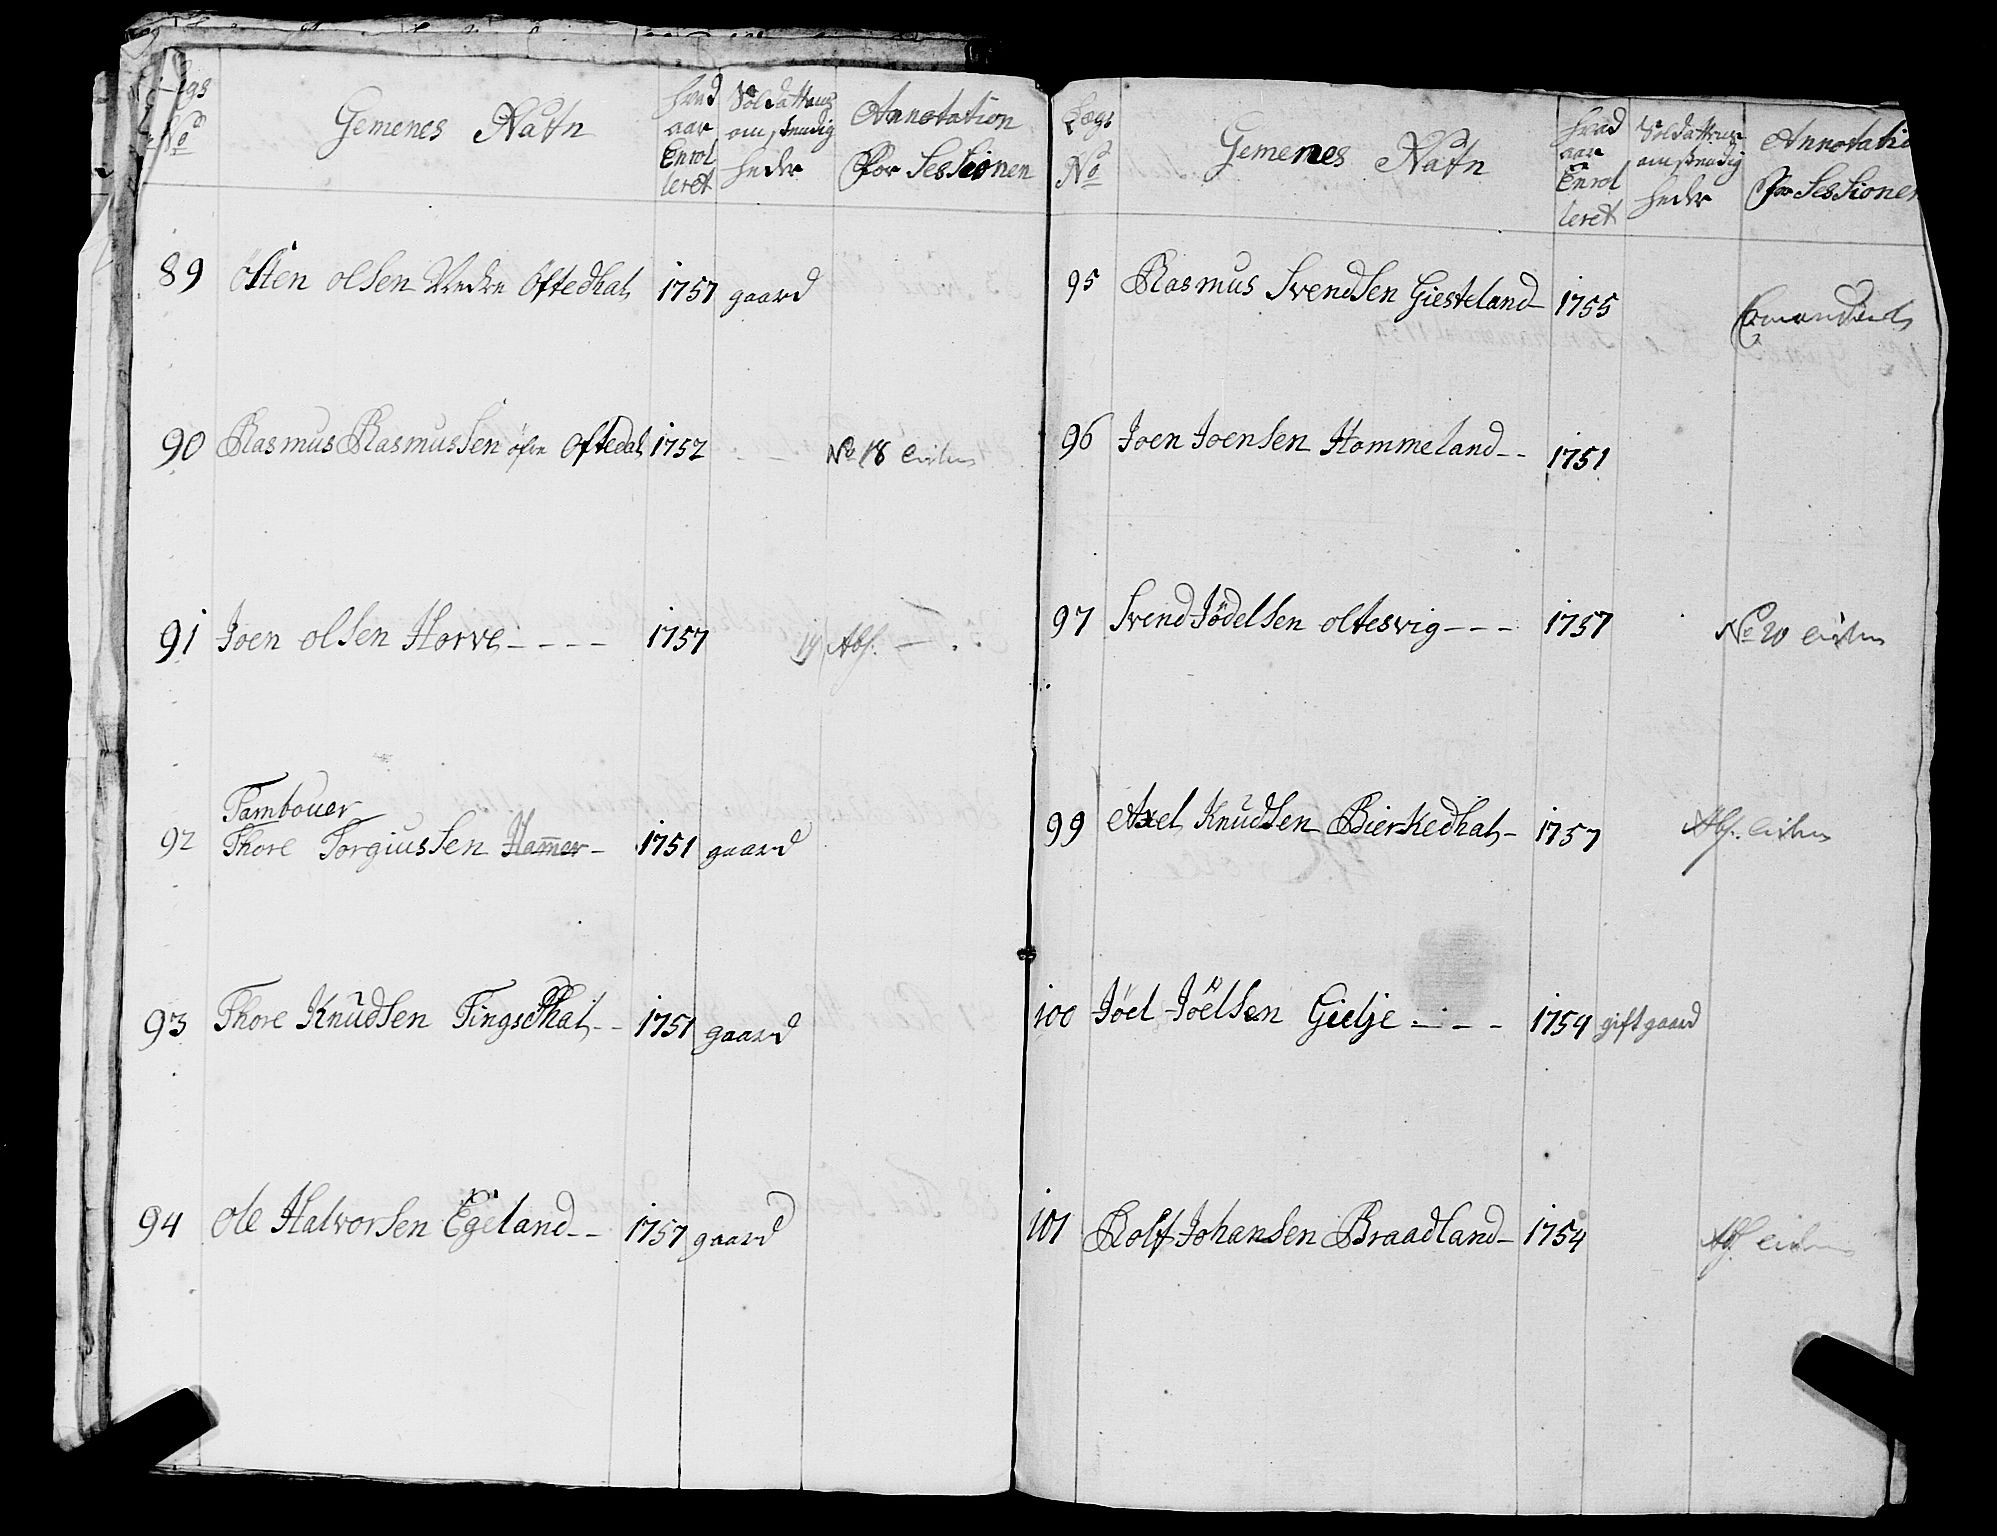 Lægs
No
Gemenes Nafn
hvad
aar
Enrol
leret
Soldattens
omstendig
heder
Annotation
for Sessionen
89 Östen olsen Nedre Oftedhal 1757 gaard
90 Rasmus Rasmussen öfre Oftedal 1752 - - No 18
91 Joen olsen Horve - - - - 1757 19 Abs. -
Tambouer
92 Thore Torgiussen Ham̅er - 1751 gaard
93 Thore Knudsen Tingsdhal - - 1751 gaard
94 Ole Halvorsen Egeland - - 1757 gaard
Lægs
No
Gemenes Nafn
hvad
aar
Enrol
leret
Soldattens
omstendig
heder
Annotatio
for Sessionen
95 Rasmus Svendsen Giesteland - 1755
96 Joen Joensen Hommeland - - 1751
97 Svend Jödelsen oltesvig - - - 1757 No 20
99 Axel Knudsen Bierkedhal - 1757 Abs.
100 Jöel Jöelsen Gielje - - - 1754 gift gaard
101 Rolf Johansen Braadland - 1754 Abs.